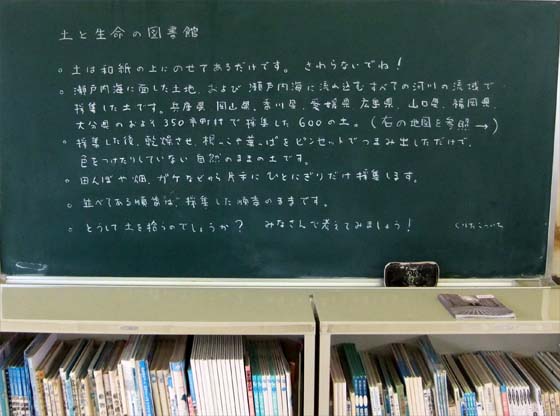 土と生命の図書館
○ 土は和紙の上にのせてあるだけです。さわらないでね！
○ 瀬戸内海に面した土地、および瀬戸内海に流れ込むすべての河川の流域で
採集した土です。兵庫県、岡山県、香川県、愛媛県、広島県、山口県、福岡県、
大分県のおよそ350市町村で採集した600の土。（右の地図を参照→）
○ 採集した後、乾燥させ、根っこや葉っぱをピンセットでつまみ出しただけで、
色をつけたりしていない自然のままの土です。
○ 田んぼや畑、ガケなどから片手にひとにぎりだけ採集します。
○ 並べてある順番は、採集した順番のままです。
○ どうして土を拾うのでしょうか？ みなさんで考えてみましょう！ くりたこういち